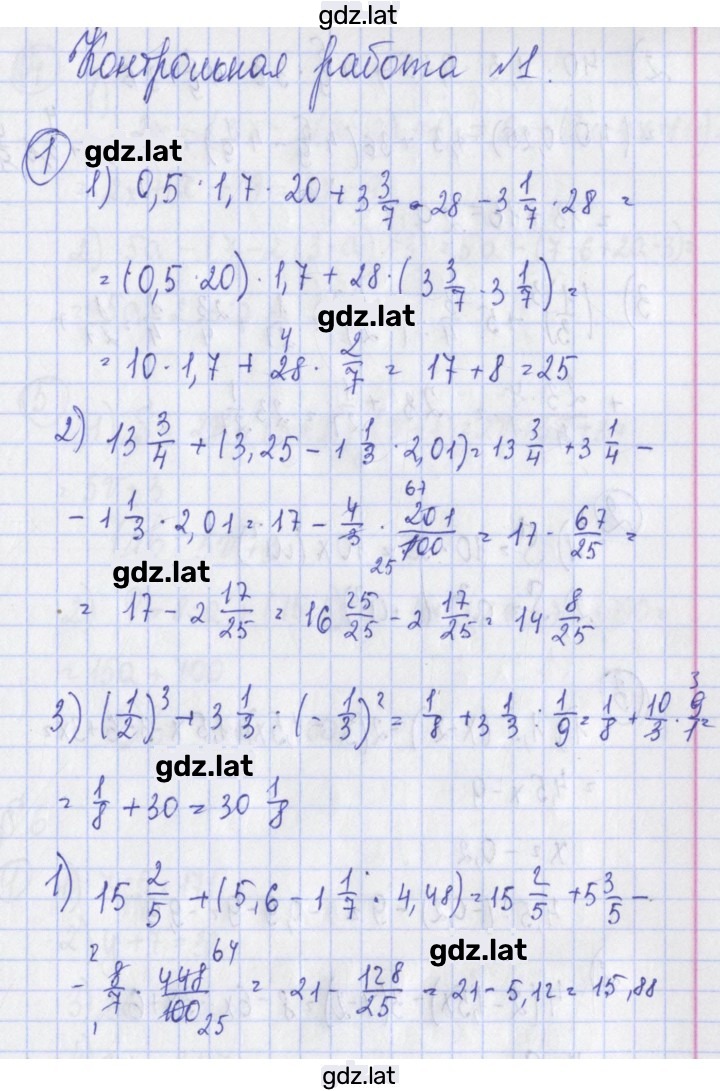 gdz.lat
Контрольная работа №1.
① gdz.lat
1) 0,5 · 1,7 · 20 + 3 3/7 · 28 - 3 1/7 · 28 =
= (0,5 · 20) · 1,7 + 28 · (3 3/7 · 3 1/7) =
gdz.lat
= 10 · 1,7 + 28 4 · 2/7 = 17 + 8 = 25
2) 13 3/4 + (3,25 - 1 1/3 · 2,01) = 13 3/4 + 3 1/4 -
- 1 1/3 · 2,01 = 17 - 4/3 · 201 67/100 25 = 17 - 67/25 =
gdz.lat
= 17 - 2 17/25 = 16 25/25 - 2 17/25 = 14 8/25
3) (1/2)³ + 3 1/3 : (- 1/3)² = 1/8 + 3 1/3 : 1/9 = 1/8 + 10/3 · 9 3/1 =
gdz.lat
= 1/8 + 30 = 30 1/8
1) 15 2/5 + (5,6 - 1 1/7 · 4,48) = 15 2/5 + 5 3/5 -
gdz.lat
- 8 2/7 1 · 448 64/100 25 = 21 - 128/25 = 21 - 5,12 = 15,88
gdz.lat